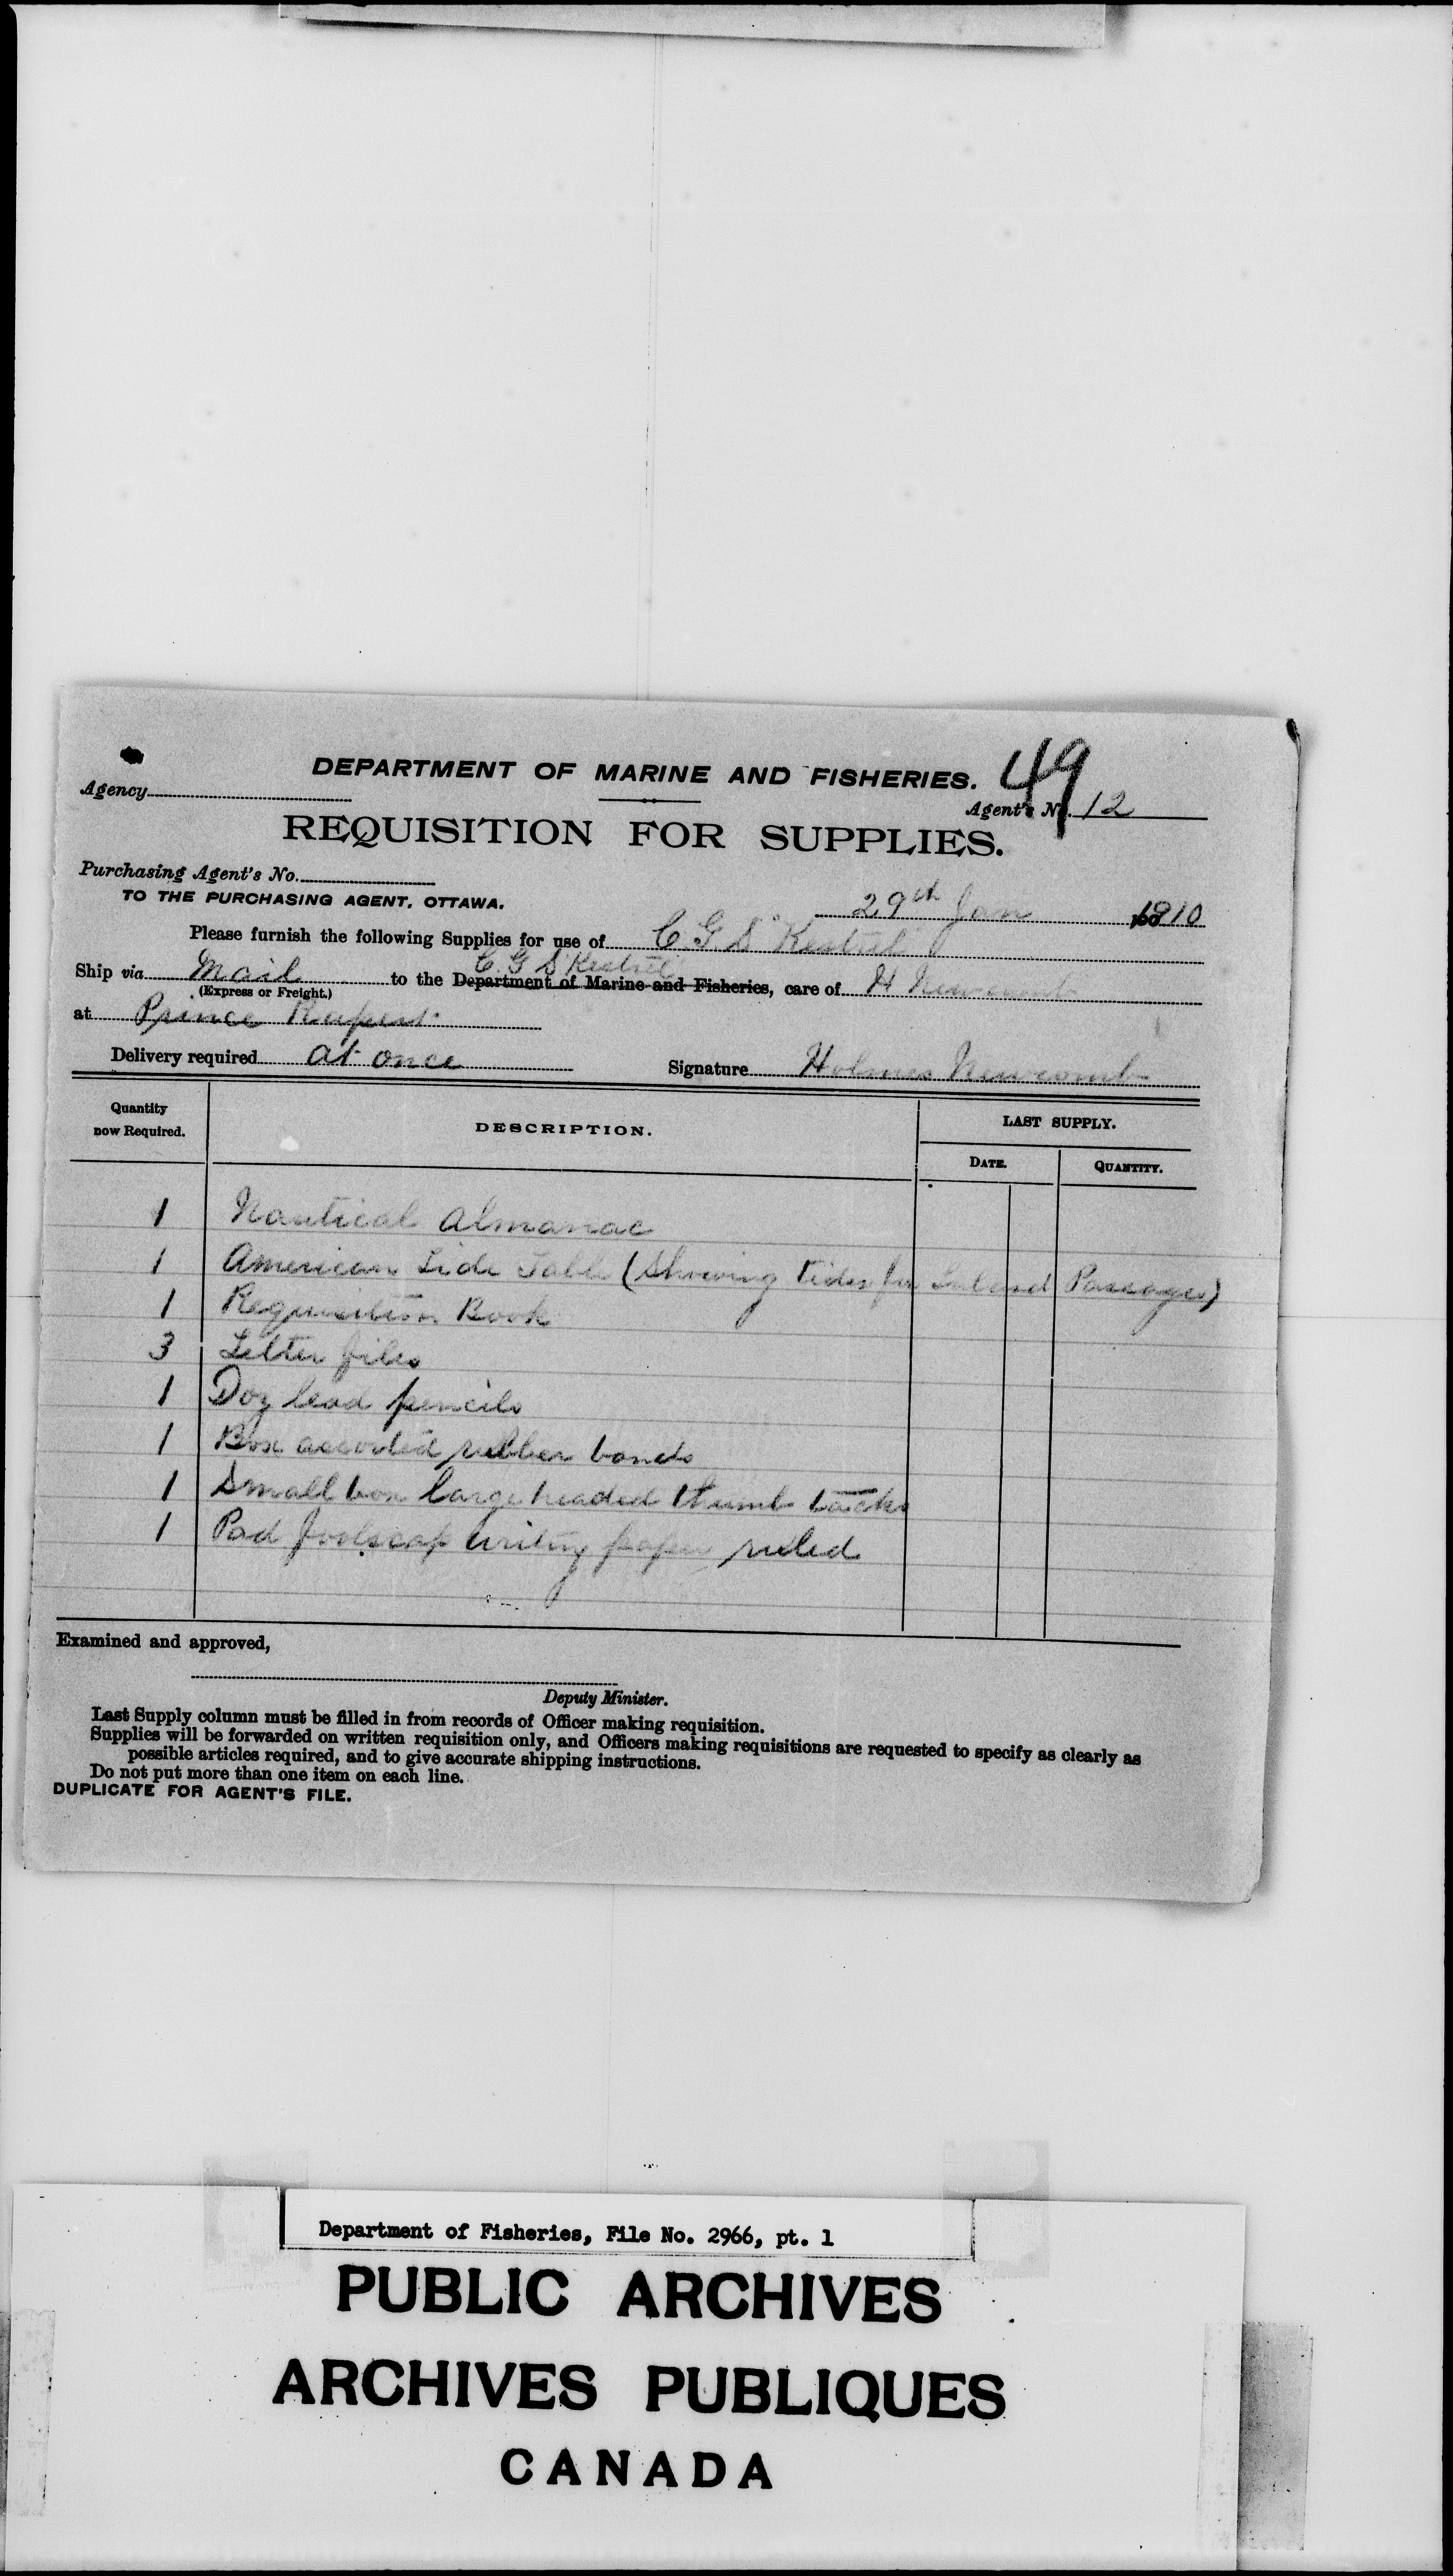 49
DEPARTMENT OF MARINE AND FISHERIES.
Agency
Agent's No. 12
REQUISITION FOR SUPPLIES.
Purchasing Agent's No.
TO THE PURCHASING AGENT, OTTAWA.
29th Jan 1910
Please furnish the following Supplies for use of C. G. S "Kestrel"
C. G S "Kestrel"
Ship via Mail to the Department of Marine and Fisheries, care of H Newcomb
(Express or Freight.)
at Prince Rupert
Delivery required at once Signature Holmes Newcomb
Quantity now Required. DESCRIPTION. LAST SUPPLY.
DATE. QUANTITY.
1 Nautical Almanac
1 American Tide Table (Showing tides for Inland Passages)
1 Requisition Book
3 Letter files
1 Doz lead pencils
1 Box assorted rubber bands
1 Small box large headed thumb tacks
1 Pad foolscap writing paper ruled
Examined and approved,
Deputy Minister.
Last Supply column must be filled in from records of Officer making requisition.
Supplies will be forwarded on written requisition only, and Officers making requisitions are requested to specify as clearly as
possible articles required, and to give accurate shipping instructions.
Do not put more than one item on each line.
DUPLICATE FOR AGENT'S FILE.
Department of Fisheries, File No. 2966, pt. 1
PUBLIC ARCHIVES
ARCHIVES PUBLIQUES
CANADA